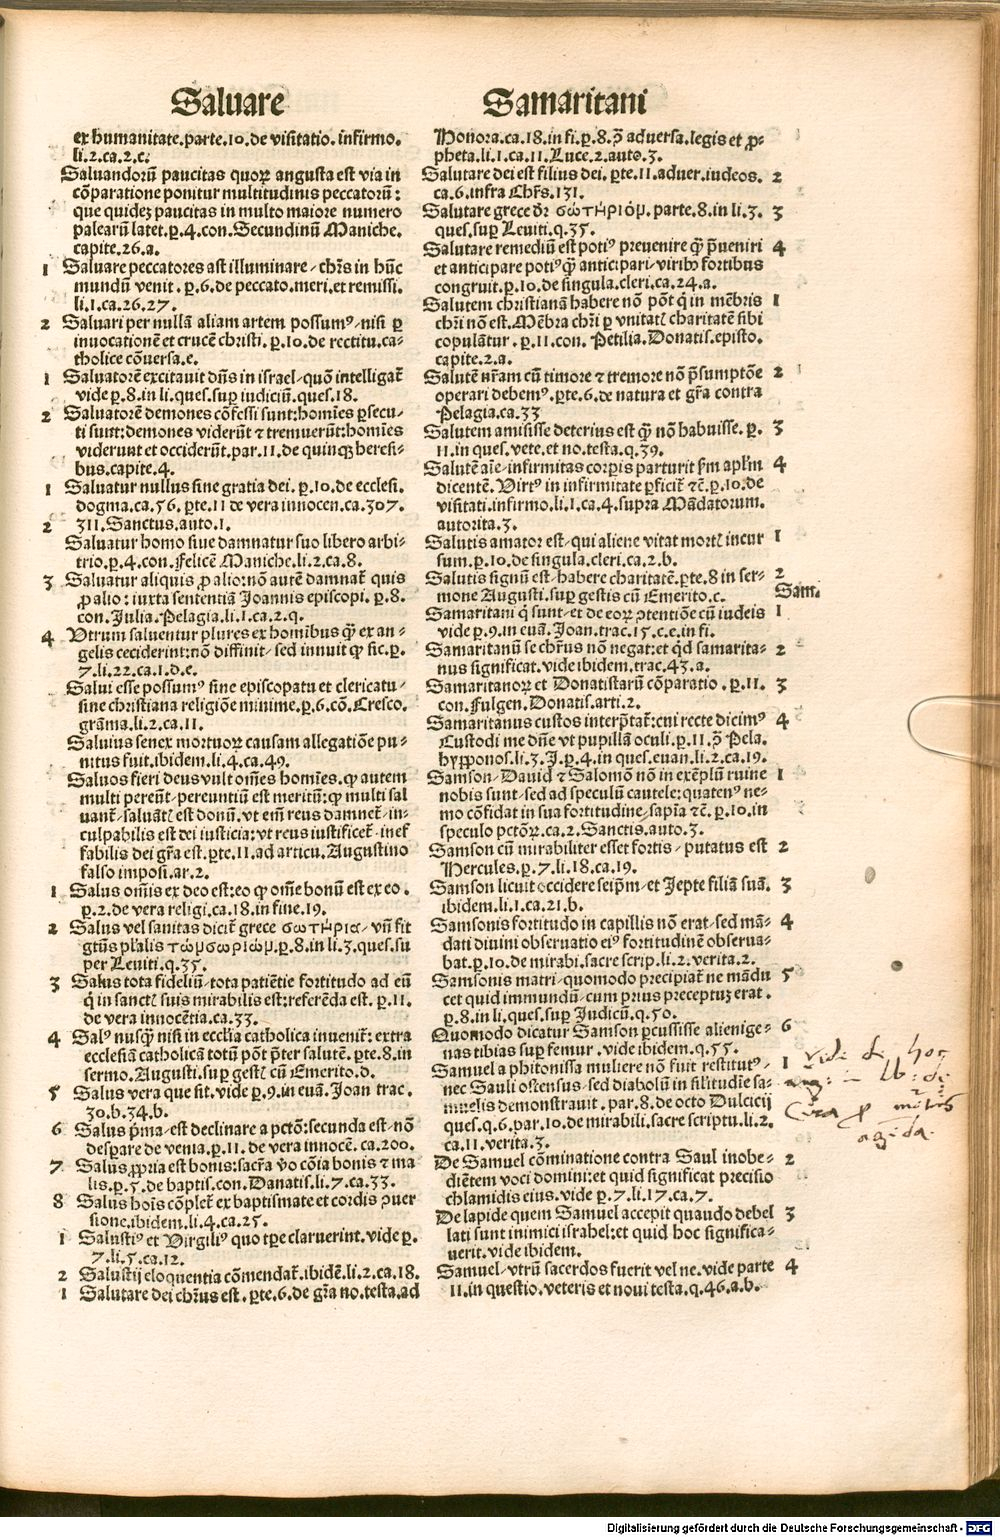 Saluare
ex humanitate.parte.10.de visitatio.infirmo.
li.2.ca.2.c.
Saluandorũ paucitas quoꝝ angusta est via in
cõparatione ponitur multitudinis peccatorũ:
que quideȝ paucitas in multo maiore numero
palearũ latet.p̱.4.con.Secundinũ Maniche.
capite.26.a.
1 Saluare peccatores ast illuminare/chr̃s in hũc
mundũ venit.p̱.6.de peccato.meri.et remissi.
li.1.ca.26.27.
2 Saluari per nullã aliam artem possumꝰ/nisi p̱
inuocationẽ et crucẽ christi.p̱.10.de rectitu.ca⸗
tholice cõuersa.e.
1 Saluatorẽ excitauit dñs in israel/quõ intelligat̃
vide p̱.8.in li.ques.suꝑ iudiciũ.ques.18.
2 Saluatorẽ demones cõfessi sunt:homĩes p̱secu⸗
ti sunt:demones viderũt ⁊ tremuerũt:homĩes
viderunt et occiderũt.par.11.de quinqȝ heresi⸗
bus.capite.4.
1 Saluatur nullus sine gratia dei.p̱.10.de ecclesi.
dogma.ca.56.p̱te.11 de vera innocen.ca.307.
2 311.Sanctus.auto.1.
Saluatur homo siue damnatur suo libero arbi⸗
trio.p̱.4.con.Felicẽ Maniche.li.2.ca.8.
3 Saluatur aliquis ꝓ alio:nõ autẽ damnat̃ quis
ꝓ alio: iuxta sententiã Joannis episcopi.p̱.8.
con.Julia.Pelagia.li.1.ca.2.q.
4 Vtrum saluentur plures ex homĩbus qꝫ̃ ex an⸗
gelis ceciderint:nõ diffinit/sed innuit ꝙ sic.p̱.
7.li.22.ca.1.d.e.
Salui esse possumꝰ sine episcopatu et clericatu/
sine christiana religiõe minime.p̱.6.cõ.Cresco.
grãma.li.2.ca.11.
Saluius senex mortuoꝝ causam allegatiõe pu⸗
nitus fuit.ibidem.li.4.ca.49.
Saluos fieri deus vult om̃es homĩes.ꝙ autem
multi pereũt/pereuntiũ est meritũ:ꝙ multi sal
uant̃/saluãtꝭ est donũ.vt em̃ reus damnet̃/in⸗
culpabilis est dei iusticia:vt reus iustificet̃/inef
fabilis dei gr̃a est.p̱te.11.ad articu.Augustino
falso imposi.ar.2.
1 Salus om̃is ex deo est:eo ꝙ om̃e bonũ est ex eo.
p̱.2.de vera religi.ca.18.in fine.19.
2 Salus vel sanitas dicit̃ grece σωτηρια/vñ fit
gtũs pl̃alis τωμσωριωμ.p̱.8.in li.3.ques.su
per Leuiti.q.35.
3 Salus tota fideliũ/tota patiẽtie fortitudo ad eũ
q̃ in sanctꝭ suis mirabilis est:referẽda est.p̱.11.
de vera innocẽtia.ca.33.
4 Salꝰ nusqꝫ̃ nisi in eccl̃ia catholica inuenit̃: extra
ecclesiã catholicã totũ põt p̃ter salutẽ.p̱te.8.in
sermo.Augusti.suꝑ gestꝭ cũ Emerito.d.
5 Salus vera que sit.vide p̱.9.in euã.Joan trac.
30.b.34.b.
6 Salus p̃ma/est declinare a pctõ:secunda est/nõ
desꝑare de venia.p̱.11.de vera innocẽ.ca.200.
7 Salus ꝓpria est bonis:sacr̃a ṽo cõia bonis ⁊ ma
lis.p̱.5.de baptis.con.Donatis.li.7.ca.33.
8 Salus hoĩs cõplet̃ ex baptismate et cordis ꝯuer
sione.ibidem.li.4.ca.25.
1 Salustiꝰ et Virgiliꝰ quo tp̃e claruerint.vide p̱.
7.li.5.ca.12.
2 Salustij eloquentia cõmendat̃.ibidẽ.li.2.ca.18.
1 Salutare dei chr̃us est.p̱te.6.de gr̃a no.testa.ad
Samaritani
Honora.ca.18.in fi.p̱.8.ꝯ̃ aduersa.legis et ꝓ⸗
pheta.li.1.ca.11.Luce.2.auto.3.
Salutare dei est filius dei.p̱te.11.aduer.iudeos. 2
ca.6.infra Chr̃s.131.
Salutare grece dr̃ σωτηριομ.parte.8.in li.3. 3
ques.suꝑ Leuiti.q.35.
Salutare remediũ est potiꝰ preuenire qꝫ̃ p̃ueniri 4
et anticipare potiꝰ qꝫ̃ anticipari/virib⁹ fortibus
congruit.p̱.10.de singula.cleri.ca.24.a.
Salutem christianã habere nõ põt q̃ in mẽbris 1
chr̃i nõ est.Mẽbra chr̃i p̱ vnitatꝭ charitatẽ sibi
copulãtur.p̱.11.con.Petilia.Donatis.episto.
capite.2.a.
Salutẽ nr̃am cũ timore ⁊ tremore nõ p̃sumptõe 2
operari debemꝰ.p̱te.6.de natura et gr̃a contra
Pelagia.ca.33
Salutem amisisse deterius est qꝫ̃ nõ habuisse.p̱. 3
11.in ques.vete.et no.testa.q.39.
Salutẽ aĩe/infirmitas corꝑis parturit s̃m apl̃m 4
dicentẽ.Virtꝰ in infirmitate p̱ficit̃ ⁊c̃.p̱.10.de
visitati.infirmo.li.1.ca.4.supra Mãdatorum.
autorita.3.
Salutis amator est/qui aliene vitat mortꝭ incur 1
sum.p̱.10.de singula.cleri.ca.2.b.
Salutis signũ est/habere charitatẽ.p̱te.8 in ser⸗ 2
mone Augusti.suꝑ gestis cũ Emerito.c.
Sam.
Samaritani q̃ sunt/et de eoꝝ ꝯtentiõe cũ iudeis 1
vide p̱.9.in euã.Joan.trac.15.c.e.in fi.
Samaritanũ se chr̃us nõ negat:et q̃d samarita⸗ 2
nus significat.vide ibidem.trac.43.a.
Samaritanoꝝ et Donatistarũ cõparatio.p̱.11. 3
con.Fulgen.Donatis.arti.2.
Samaritanus custos interp̃tat̃:cui recte dicimꝰ 4
Custodi me dñe vt pupillã oculi.p̱.11.ꝯ̃ Pela.
hypponos.li.3.J.p̱.4.in ques.euan.li.2.ca.19.
Samson/Dauid ⁊ Salomõ nõ in exẽplũ ruine 1
nobis sunt/sed ad speculũ cautele:quatenꝰ ne⸗
mo cõfidat in sua fortitudine/sapĩa ⁊c̃.p̱.10.in
speculo pctõꝝ.ca.2.Sanctis.auto.3.
Samson cũ mirabiliter esset fortis/putatus est 2
Hercules.p̱.7.li.18.ca.19.
Samson licuit occidere seip̃m/et Jepte filiã suã. 3
ibidem.li.1.ca.21.b.
Samsonis fortitudo in capillis nõ erat/sed mã⸗ 4
dati diuini obseruatio eiꝰ fortitudinẽ obserua⸗
bat.p̱.10.de mirabi.sacre scrip.li.2.verita.2.
Samsonis matri/quomodo precipiat̃ ne mãdu 5
cet quid immundũ/cum prius preceptuȝ erat.
p̱.8.in li.ques.suꝑ Judicũ.q.50.
Quomodo dicatur Samson p̱cussisse alienige⸗ 6
nas tibias suꝑ femur.vide ibidem.q.55.
Samuel a phitonissa muliere nõ fuit restitutꝰ/ 1
nec Sauli ostensus/sed diabolũ in sil̃itudĩe sa⸗
muelis demonstrauit.par.8.de octo Dulcicij
ques.q.6.par.10.de mirabili.sacre scriptu.li.2.
ca.11.verita.3.
De Samuel cõminatione contra Saul inobe⸗ 2
diẽtem voci domini:et quid significat precisio
chlamidis eius.vide p̱.7.li.17.ca.7.
De lapide quem Samuel accepit quaudo debel 3
lati sunt inimici israhel:et quid hoc significa⸗
uerit.vide ibidem.
Samuel/vtrũ sacerdos fuerit vel ne.vide parte 4
11.in questio.veteris et noui testa.q.46.a.b.
vide
Digitalisierung gefördert durch die Deutsche Forschungsgemeinschaft - DFG